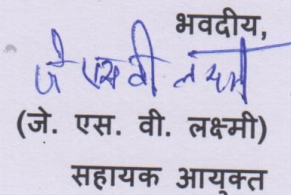 भवदीय,
जे एस वी लक्ष्मी
(जे. एस. वी. लक्ष्मी)
सहायक आयुक्त